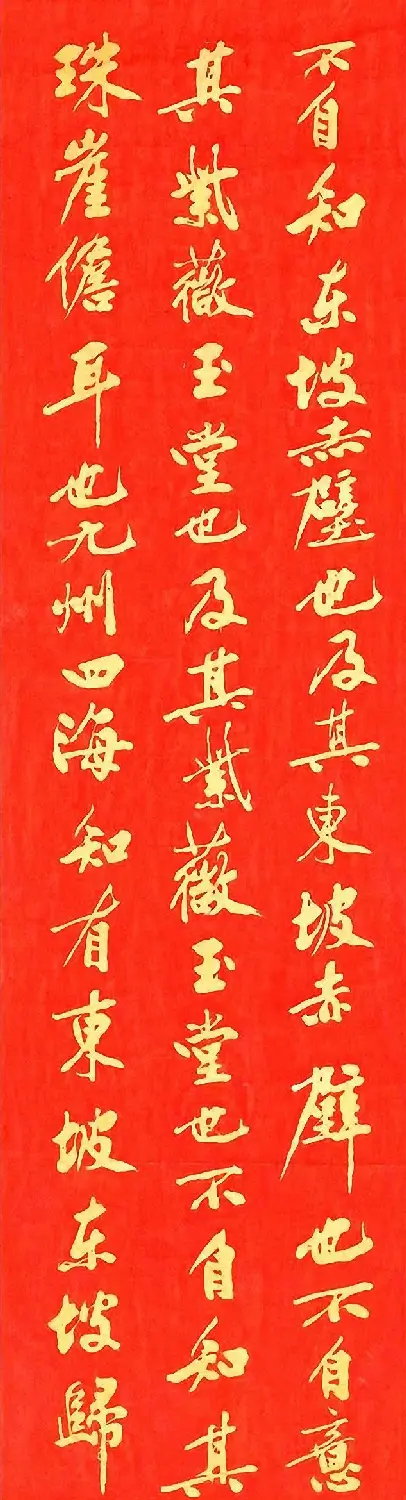 不自知东坡赤壁也及其東坡赤壁也不自意
其紫薇玉堂也及其紫薇玉堂也不自知其
珠崖儋耳也九州四海知有東坡东坡歸